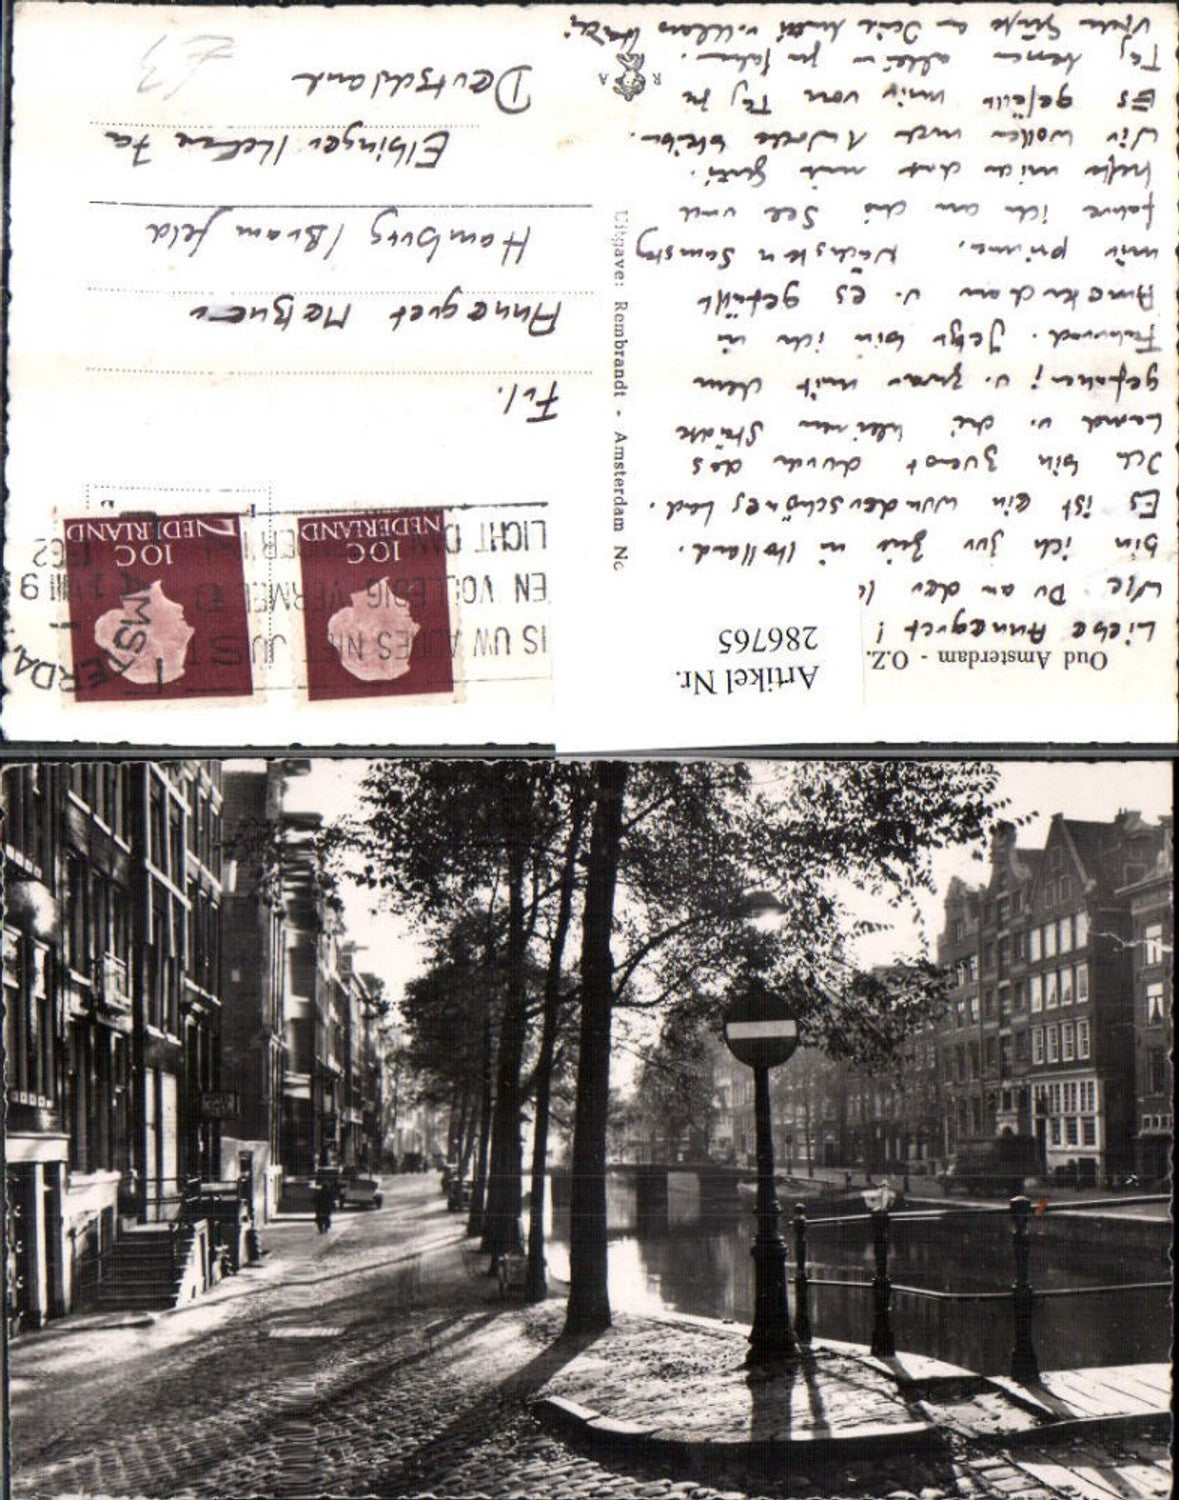 Oud Amsterdam - O.Z.
Artikel Nr.
286765
Liebe Annegret!
Wie Du an der
bin ich zur Zeit in Holland.
Es ist ein wunderschönes Land.
Ich bin zuerst durch das
Land u. die kleinen Städte
gefahren; u. zwar mit dem
Fahrrad. Jetzt bin ich in
Amsterdam u. es gefällt
mir prima. Nächsten Samstag
fahre ich an die See und
hoffe mich dort mit
Wir wollen noch 1 Woche bleiben.
Es gefällt mir von Tag zu
Tag
Viele Grüße an Deine Mutti
R A
Uitgave: Rembrandt - Amsterdam No
IS UW ADRES NIET JUIST
EN VOLLEDIG VERMELD
LICHT DAN
AMSTERDAM
1962
NEDERLAND
10 C
NEDERLAND
10 C
Frl.
Annegret
Hamburg / Bramfeld
Elbinger Kehre 7a
Deutschland
£3